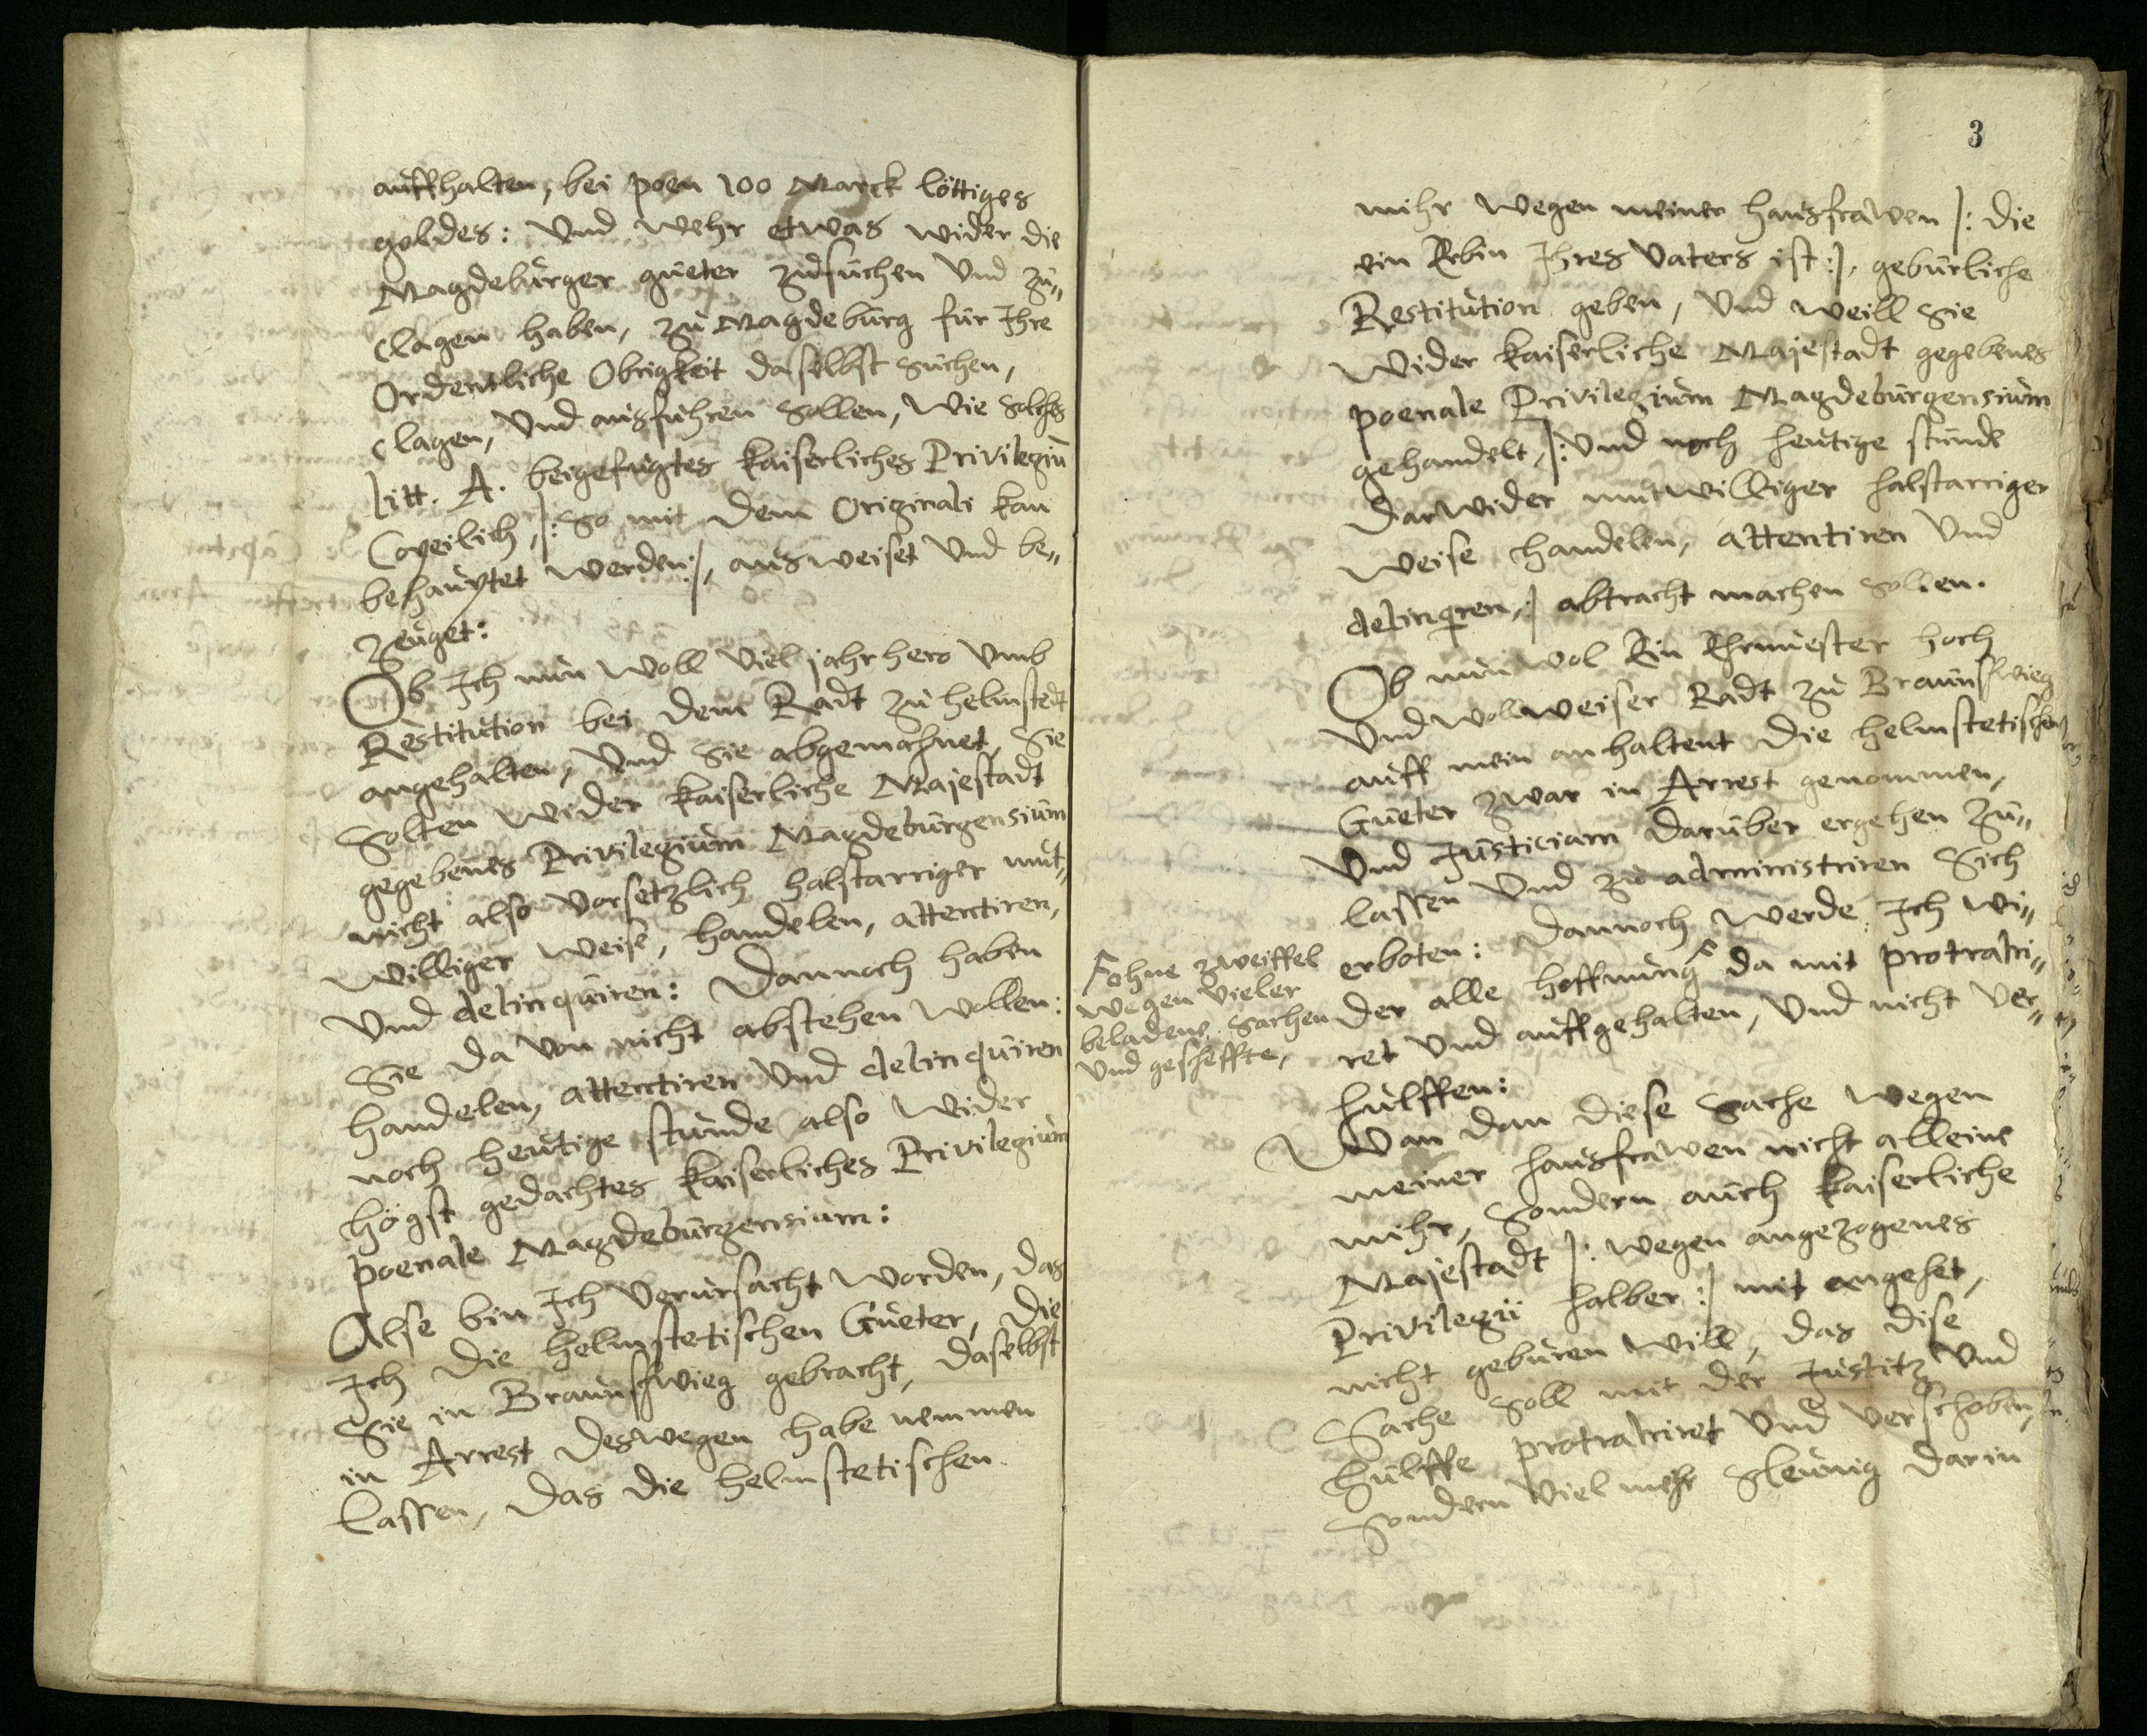 auffhalten, bei poen 100 Marck löttiges
goldes: Vnd wehr etwas wider die
Magdeburger güeter zusuchen Vnd zu„
clagen haben, zu Magdeburg für Ihre
Ordentliche Obrigkeit daselbst suchen,
clagen, Vnd ausfuhren sollen, wie solches
litt. A. beigefugtes kaiserliches Privilegiū
Copeilich, |: so mit dem Originali kan
behauptet werden:|, ausweiset Vnd be„
zeuget:
Ob Ich nun woll viel jahr hero Vmb
Restitution bei dem Radt zu helmstedt
angehalten, Vnd sie abgemahnet, Sie
solten wider kaiserliche Majestadt
gegebenes Privilegium Magdeburgensium
nicht also vorsetzlich halstarriger mut„
williger weise, handelen, attentiren,
Vnd delinquiren: Dannoch haben
Sie da von nicht abstehen wollen:
handelen, attentiren Vnd delinquiren
noch heutige stunde also wider
högst gedachtes kaiserliches Privilegium
poenale Magdeburgensium:
Alse bin Ich verursacht worden, das
Ich die helmstetischen Güeter, die
Sie in Braunswieg gebracht, daselbst
in Arrest deswegen habe nemmen
lassen, das die helmstetischen
3
mihr wegen meiner hausfrawen |: die
ein Erbin Ihres Vaters ist:|, gebürliche
Restitution geben, Vnd weill sie
wider kaiserliche Majestadt gegebenes
poenale Privilegium Magdeburgensium
gehandelt, |: Vnd noch heutige stunde
darwider mutwilliger halstarriger
weise handelen, attentiren Vnd
delinqren,:| abtracht machen sollen.
Ob nun wol Ein Ehrnuester hoch
Vnd wolweiser Radt zu Braunswieg
auff mein anhaltent die helmstetischen
Güeter zwar in Arrest genommen,
Vnd Justiciam darüber ergehen zu„
lassen Vnd zu administriren sich
erboten: Dannoch werde Ich wi„
der alle hoffnung da mit protrahi„
ret Vnd auffgehalten, Vnd nicht ver„
hulffen:
ohne zweiffel
wegen vieler
beladene sachen
Vnd gescheffte,
Wan dan diese Sache wegen
meiner hausfrawen nicht alleine
mihr, sondern auch kaiserliche
Majestadt |: wegen angezogenes
Privilegii halber:| mit angehet,
nicht geburen will, das dise
Sache soll mit der Justitz Vnd
hülffe protrahiret Vnd verschoben,
sondern viel mehr sleunig darin